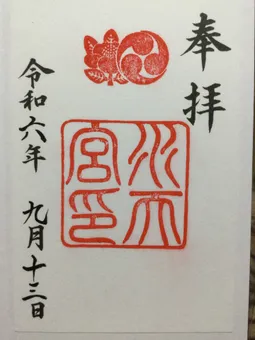 奉拝
水天宮印
令和六年 九月十三日